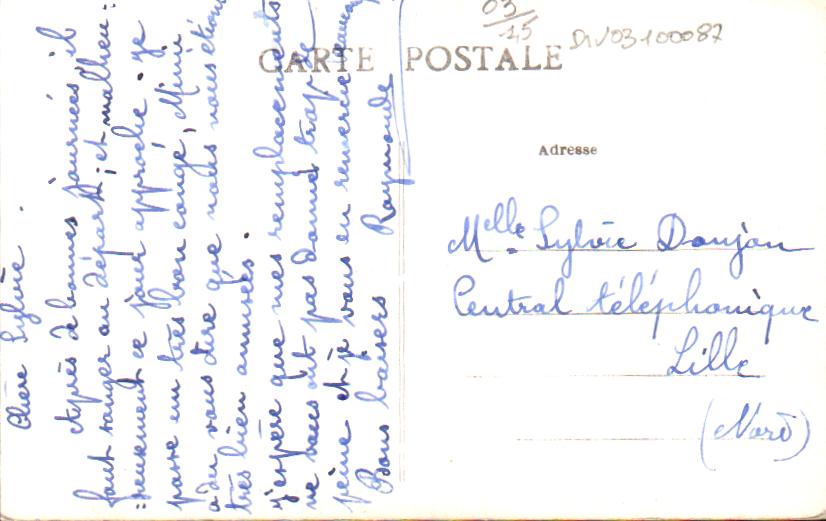 03/15
Div03100087
CARTE POSTALE
Adresse
Chère Sylvie.
Après de bonnes journées il
faut songer au départ; et malheu-
:reusement ce jour approche. Je
passe un très bon congé, Mimi
a du vous dire que nous nous étions
très bien amusées.
J'espère que mes remplacements
ne vous ont pas donné trop de
peine et je vous en remercie
Bons baisers Raymonde
Melle Sylvie Donjon
Central téléphonique
Lille
(Nord)